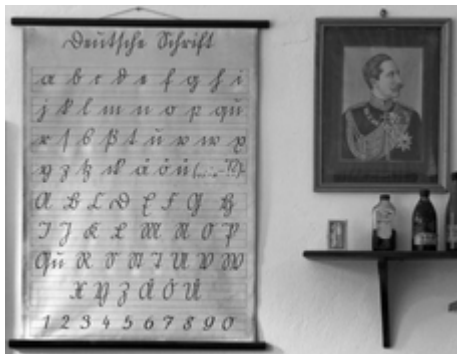 Deutsche Schrift
a b c d e f g h i
j k l m n o p qu
r ſ s ß t u v w x
y z tz ck ä ö ü (.,:;-"!?)
A B C D E F G H
I J K L M N O P
Qu R S St T U V W
X Y Z Ä Ö Ü
1 2 3 4 5 6 7 8 9 0